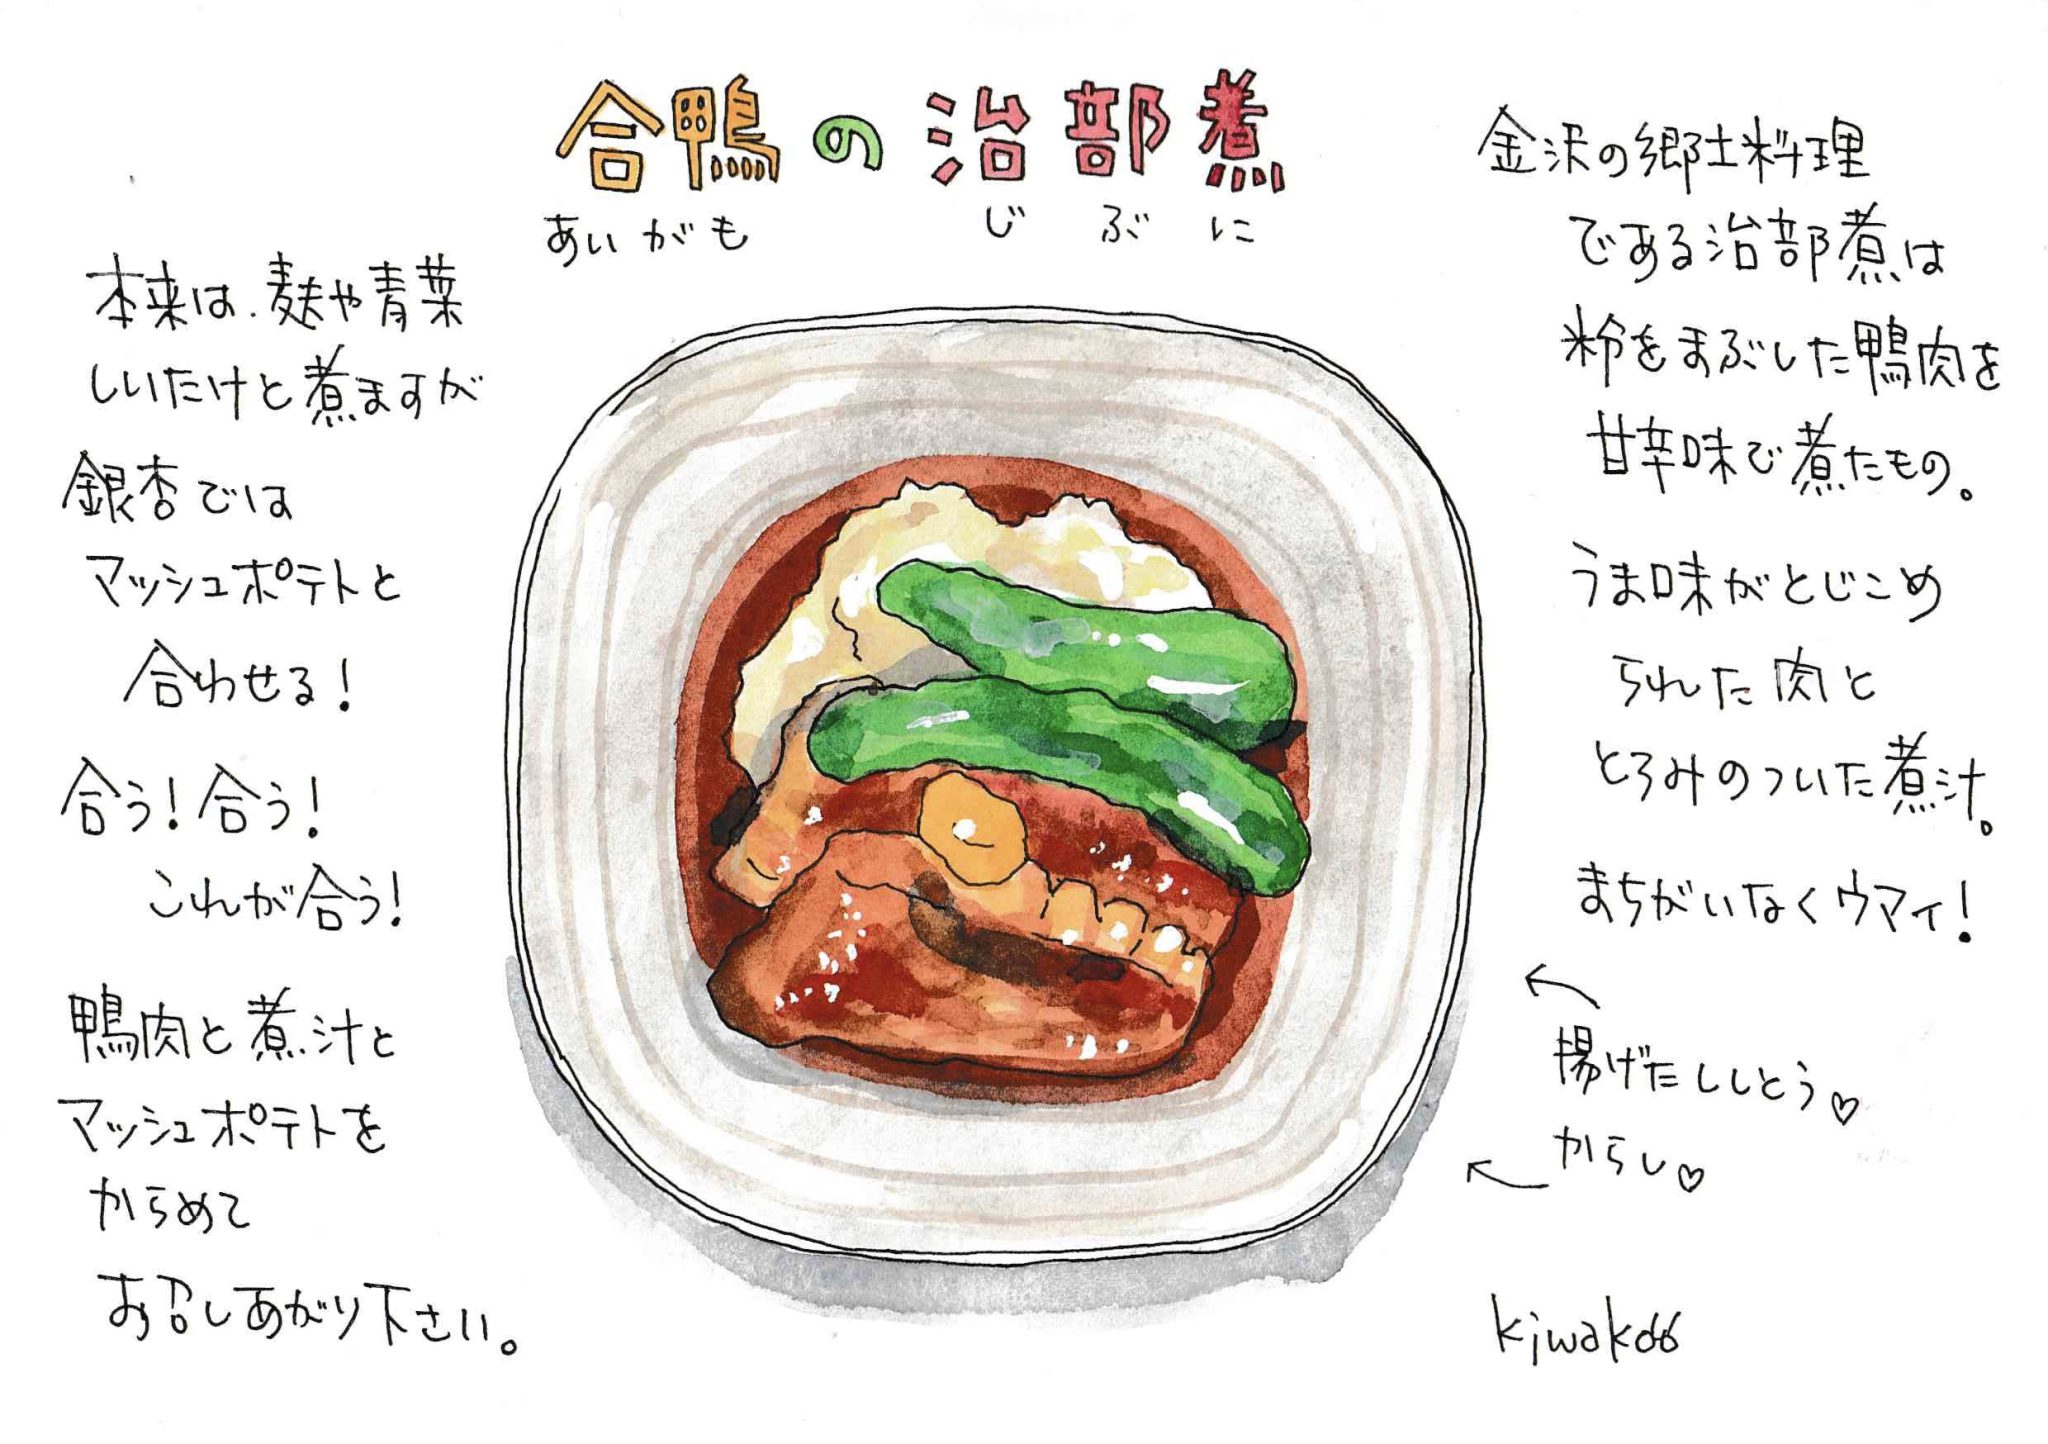 合鴨の治部煮
あいがも じぶに
金沢の郷土料理
である治部煮は
粉をまぶした鴨肉を
甘辛味で煮たもの。
うま味がとじこめ
られた肉と
とろみのついた煮汁。
まちがいなくウマイ!
揚げたししとう♡
からし♡
本来は、麸や青葉
しいたけと煮ますが
銀杏では
マッシュポテトと
合わせる!
合う!合う!
これが合う!
鴨肉と煮汁と
マッシュポテトを
からめて
お召しあがり下さい。
kiwako66